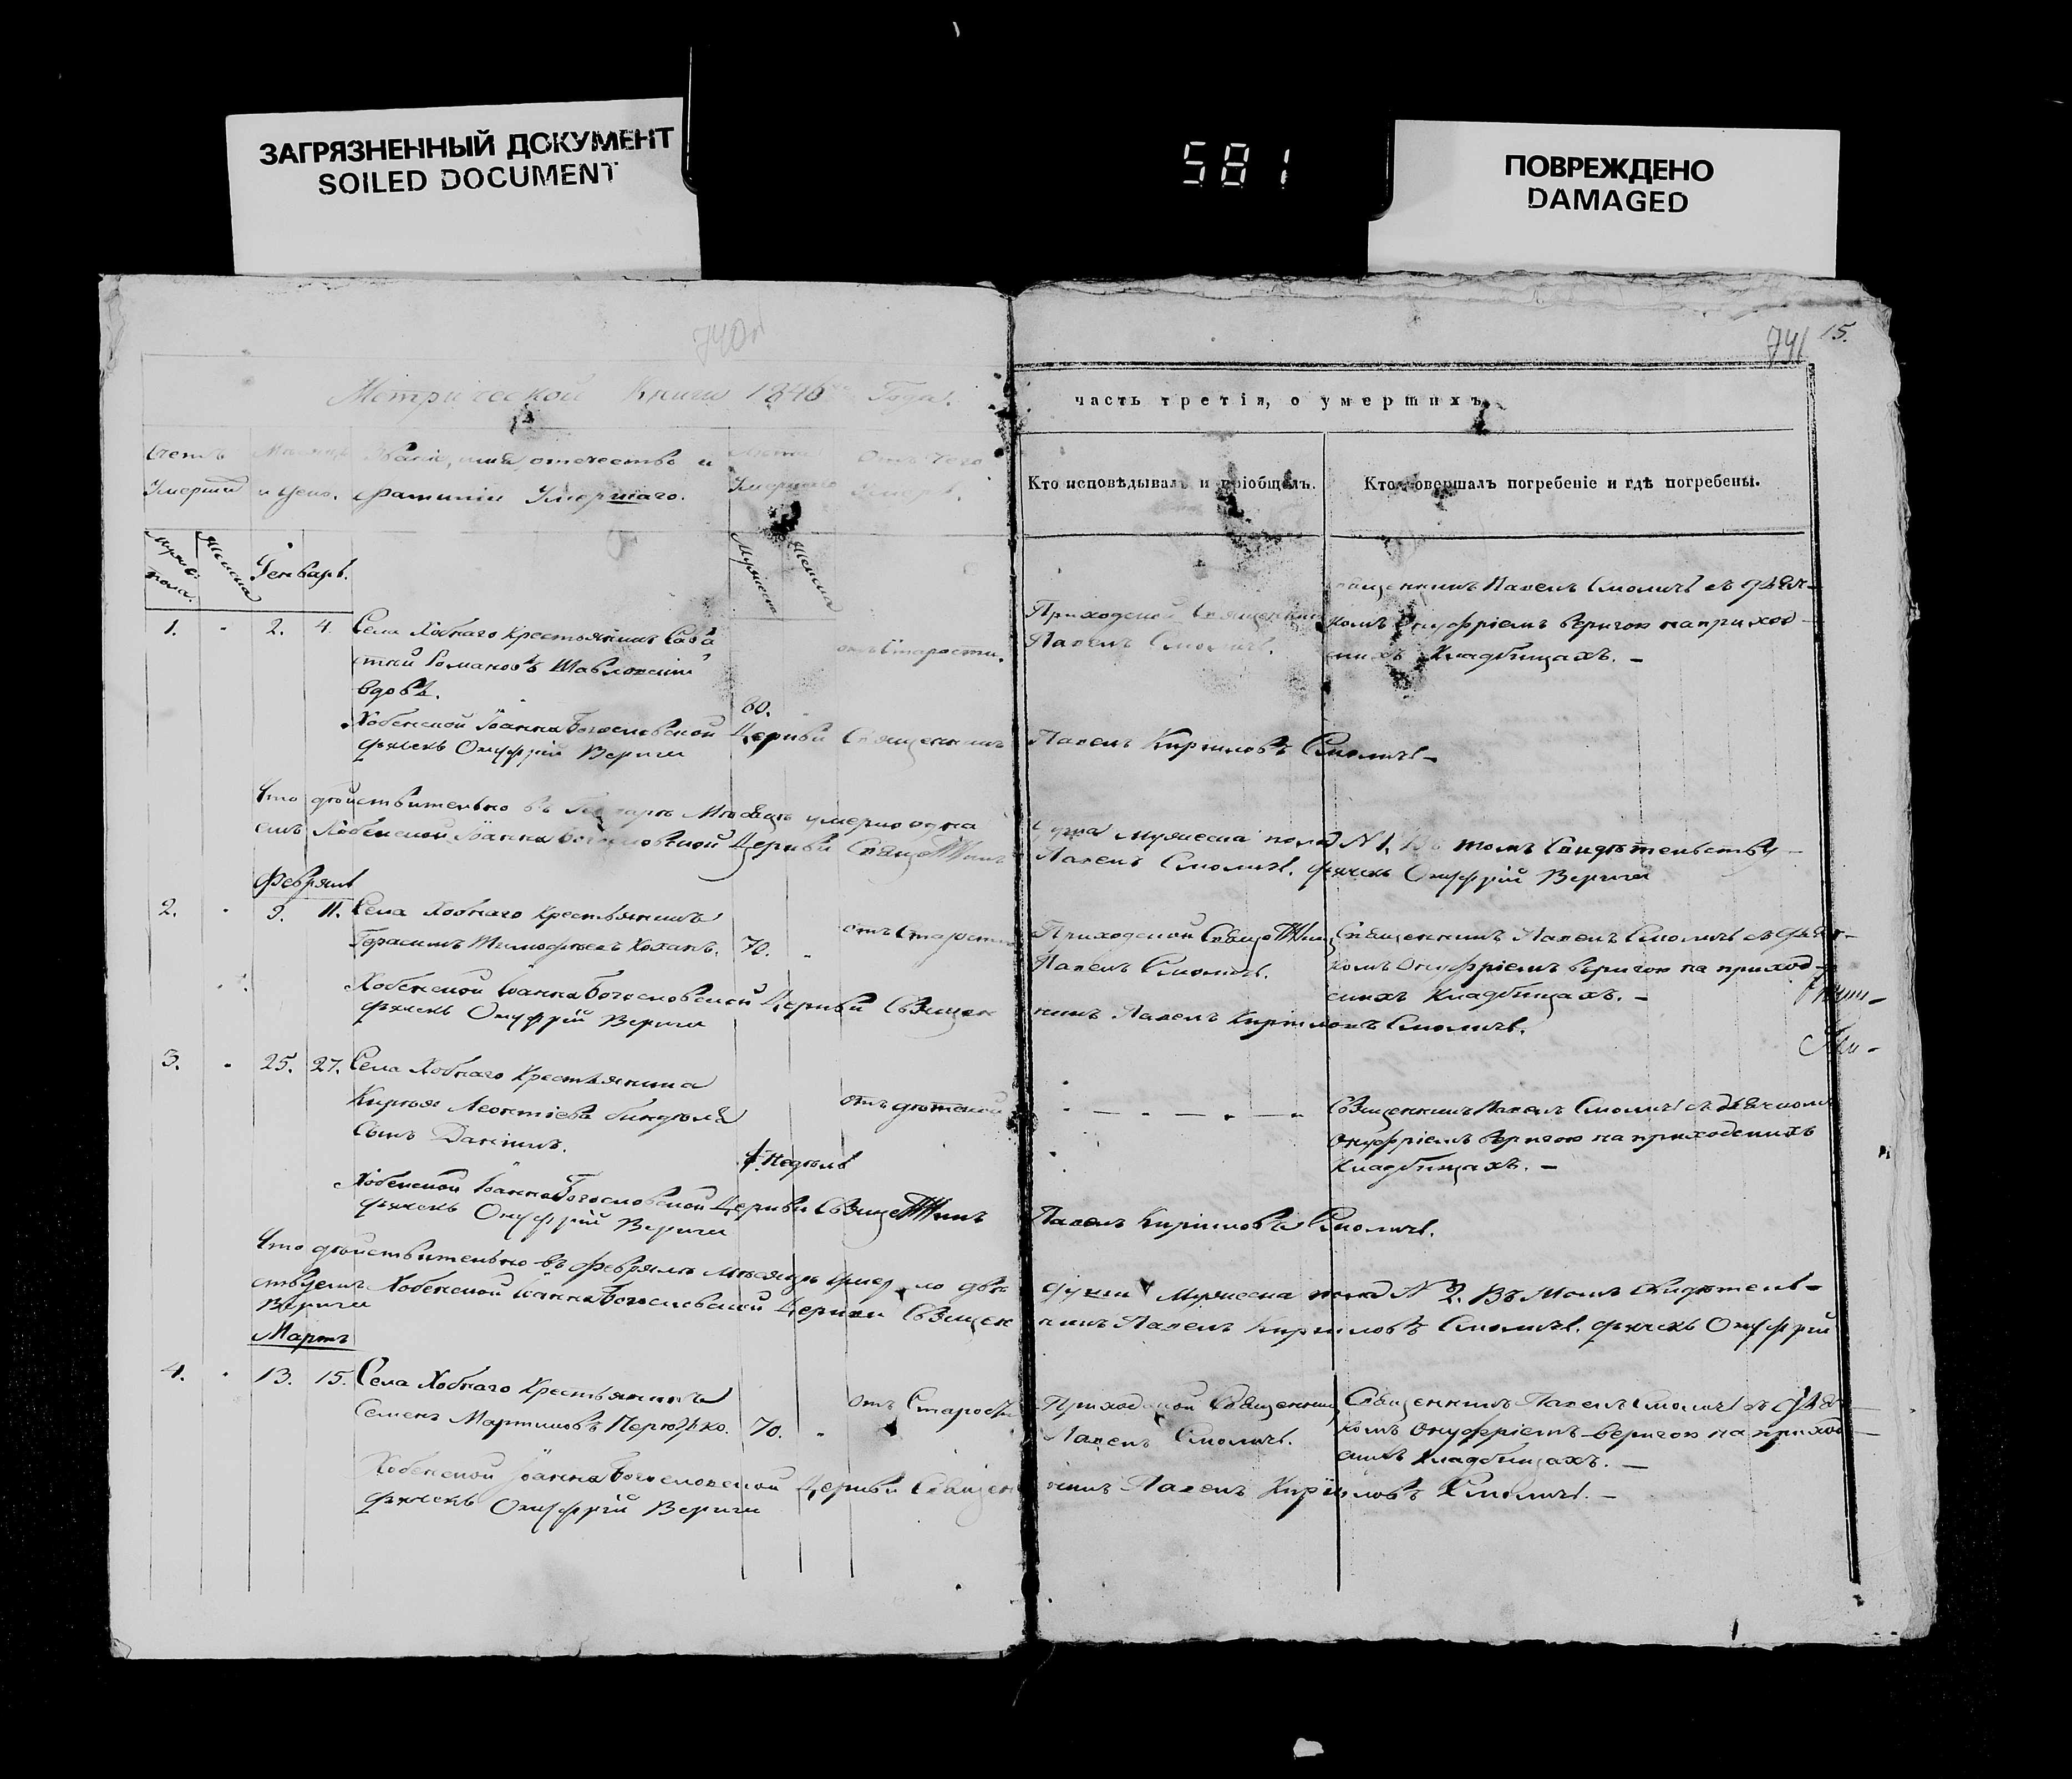 ЗАГРЯЗНЕННЫЙ ДОКУМЕНТ
SOILED DOCUMENT
581
ПОВРЕЖДЕНО
DAMAGED
741 15.
Метрической Книги 1846 Года.
часть третія, о умершихъ
Счетъ Умерши
Мѣсяцъ и день.
Званіе, имя отечество и
фамиліи Умершаго.
Лета Умершаго
Отъ чего Умеръ.
Кто исповѣдывалъ и пріобщалъ.
Кто совершалъ погребеніе и гдѣ погребены.
Мужес: пола.
Женска
Генварь.
Мужеска
Женска
1. 2. 4. Села Хобнаго Крестьянинъ
Романовъ
вдовъ.
80.
отъ Старости.
Приходской Священник
Павелъ Смоличь.
Священникъ Павелъ Смоличь съ дьяч-
комъ Онуфріемъ Веригою на приход
скихъ Кладбищахъ. –
Хобенской Іоанна Богословской Церкви Священникъ Павелъ Кириловъ Смоличь –
дьячекъ Онуфрій Верига
Что действительно въ Генваре Месяце умерло одна душа Мужеска пола N 1. Въ томъ Свидетельству –
емъ Хобенской Іоанна Богословской Церкви Павелъ Смоличь. дьячекъ Онуфрій Верига
Февраль
2. 9. 11. Села Хобнаго Крестьянинъ
Герасимъ Тимофеевъ Коханъ. 70.
отъ Старости
Приходской
Павелъ Смоличь.
Священникъ Павелъ Смоличь съ дьяч-
комъ Онуфріемъ Веригою на приход-
скихъ Кладбищахъ. –
Хобенской Іоанна Богословской Церкви Священ никъ Павелъ Кириловъ Смоличь.
дьячекъ Онуфрій Верига
3. 25. 27. Села Хобнаго Крестьянина
Леонтіева
Сынъ Даніилъ.
4. недель
отъ детской
Священникъ Павелъ Смоличь съ дьячкомъ
Онуфріемъ Веригою на приходскихъ
Кладбищахъ. –
Хобенской Іоанна Богословской Церкви Павелъ Кириловъ Смоличь.
дьячекъ Онуфрій Верига
Что действительно въ Феврале Месяце умерло две души Мужеска пола N 2. Въ томъ Свидетель-
ствуемъ Хобенской Іоанна Богословской Церкви Священ никъ Павелъ Кириловъ Смоличь. дьячекъ Онуфрій
Верига
Мартъ
4. 13. 15. Села Хобнаго Крестьянинъ
Семенъ Мартиновъ 70.
отъ Старости
Приходской Священник
Павелъ Смоличь.
Священникъ Павелъ Смоличь съ дьяч
комъ Онуфріемъ Веригою на приход
скихъ Кладбищахъ. –
Хобенской Іоанна Богословской Церкви Священ никъ Павелъ Кириловъ Смоличь. –
дьячекъ Онуфрій Верига